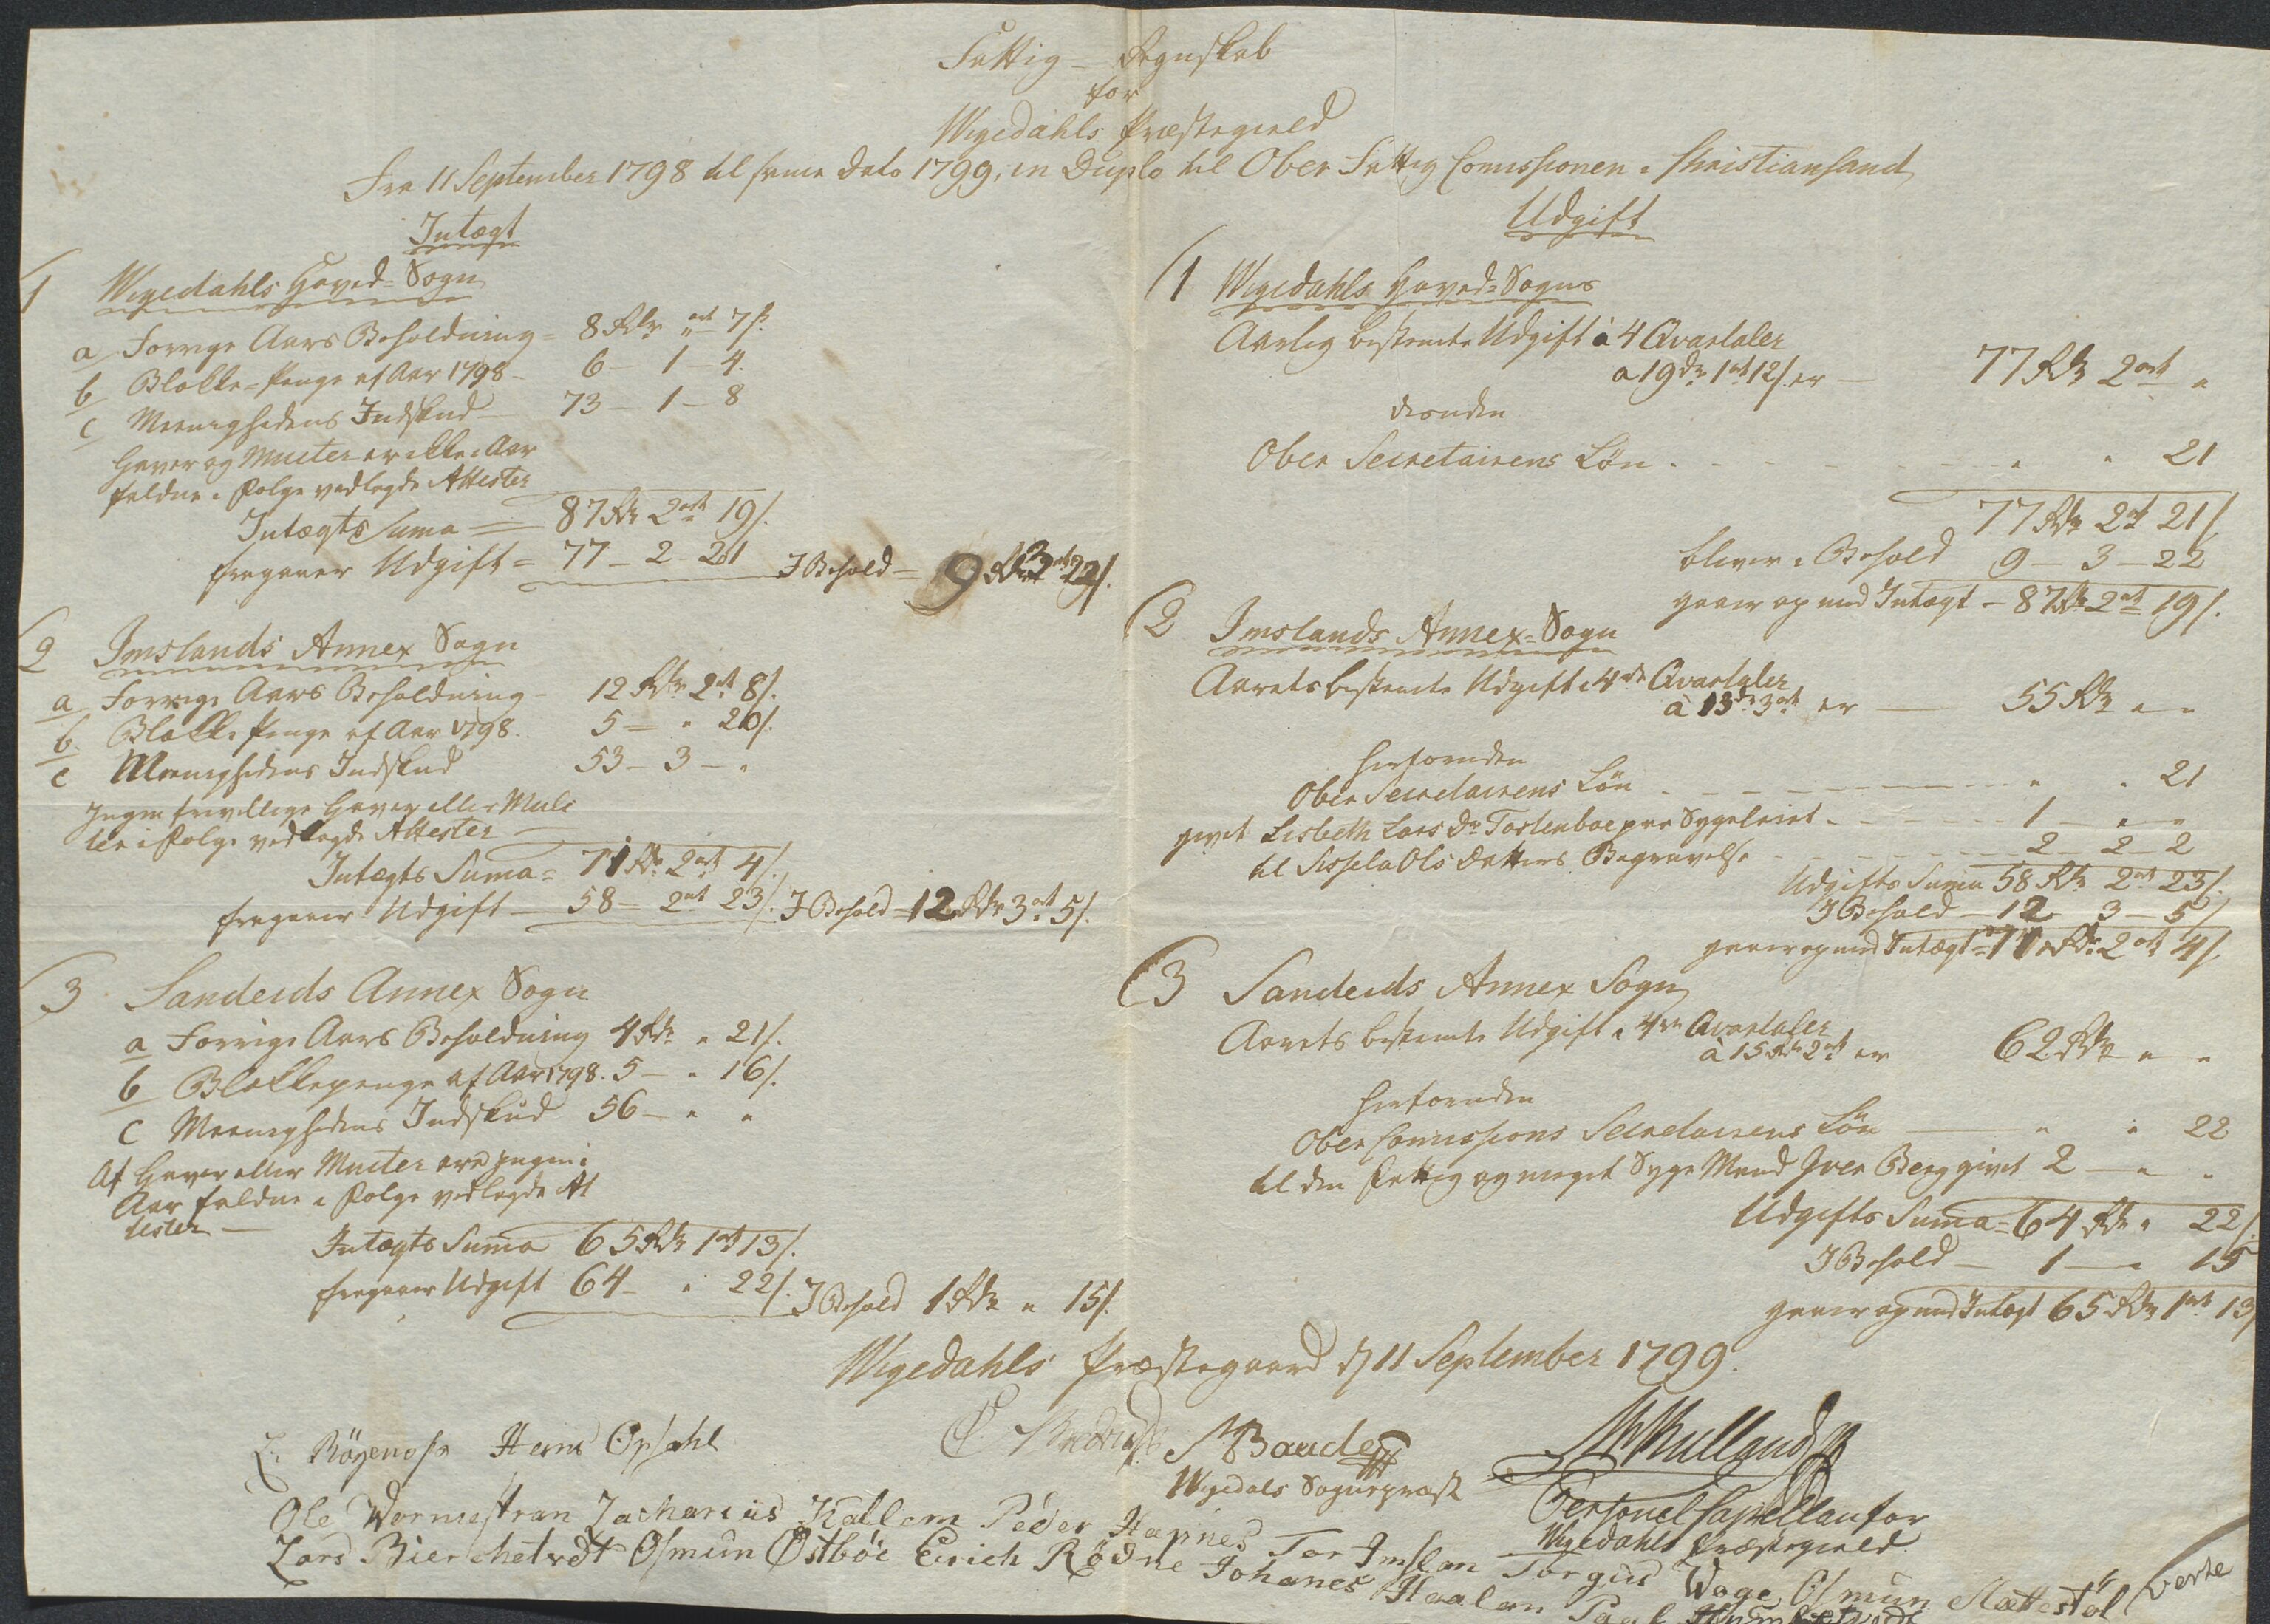 Fattig - Regnskab
for
Wigedahls Præstegield
Fra 11 September 1798 til samme Dato 1799, in Duplo til Ober Fattig Comissionen i Christiansand
Indtægt
1 Wigedahls Hoved-Sogn
a Forrige Aars Beholdning = 8 Rdr " ort 7 s.
b Blokke-Penge af Aar 1798 - 6 - 1 - 4.
c Meenighedens Indskud - 73 - 1 - 8
Gaver og Mulcter er ikke i Aar
faldne i Følge vedlagde Attester
Indtægts Suma = 87 Rdr 2 ort 19 s.
fragaaer Udgift = 77 - 2 - 21 I Behold = 9 Rdr 3 ort 22 s.
2 Imslands Annex Sogn
a Forrige Aars Beholdning - 12 Rdr 2 ort 8 s.
b. Blokke Penge af Aar 1798. 5 = " 20 s.
c Meenighedens Indskud 53 - 3 - "
Ingen frivillige Gaver eller Mulc
ter i Følge vedlagde Attester
Indtægts Suma = 71 Rdr 2 ort 4 s.
fragaaer Udgift - 58 - 2 ort 23 s. I Behold = 12 Rdr 3 ort 5 s.
3 Sandeids Annex Sogn
a Forrige Aars Beholdning 4 Rdr " 21 s.
b Blokkepenge af Aar 1798. 5 - " 16 s.
c Meenighedens Indskud 56 - " "
Af Gaver eller Mulcter ere ingen i
Aar faldne i Følge vedlagde At
tester
Indtægts Suma 65 Rdr 1 ort 13 s.
fragaaer Udgift 64 - " 22 s. I Behold 1 Rdr " 15 s.
Udgift
1 Wigedahls Hoved-Sogns
Aarlig bestemte Udgift à 4 Qvartaler
a 19 dr 1 ort 12 s. er - 77 Rdr 2 ort "
desuden
Ober Secretairens Løn . - - - " " 21
77 Rdr 2 ort 21 s.
bliver i Behold 9 - 3 - 22
gaaer op med Indtægt - 87 Rdr 2 ort 19 s.
2 Imslands Annex-Sogn
Aarets bestemte Udgift i 4de Qvartaler
à 13 dr 3 ort er - 55 Rdr " "
herforuden
Ober Secretairens Løn - - - " . 21
givet Lisbeth Lars Dr Tostenboe paa Sygeleiet - - - 1 - " "
til Sissela Ols Datters Begravelse - - - 2 - 2 - 2
Udgifts Suma 58 Rdr 2 ort 23 s.
I Behold - 12 3 - 5 s.
gaaer op med Indtægt = 71 Rdr 2 ort 4 s.
3 Sandeids Annex Sogn
Aarets bestemte Udgift i 4re Qvartaler
à 15 Rdr 2 ort er 62 Rdr " "
herforuden
Ober Comissions Secretairens Løn - " " 22
til den fattig og meget Syge Mand Iver Berg givet 2 - " "
Udgifts Suma = 64 Rdr " 22 s.
I Behold - 1 - " 15
gaaer op med Indtægt 65 Rdr 1 ort 13 s.
Wigedahls Præstegaard d 11 September 1799.
Baade
Wigedals Sognepræst
Personel Capellan for
Wigedahls Præstegield
Hans Opsahl
Ole Wormestran Zacharius Kallem Peder Hapnes Tor Imslan Torgius Wage Osmun Mættestøl
Lars Bierchetvedt Osmun Østbøe Eirich Rødne Johanes Haalan
verte